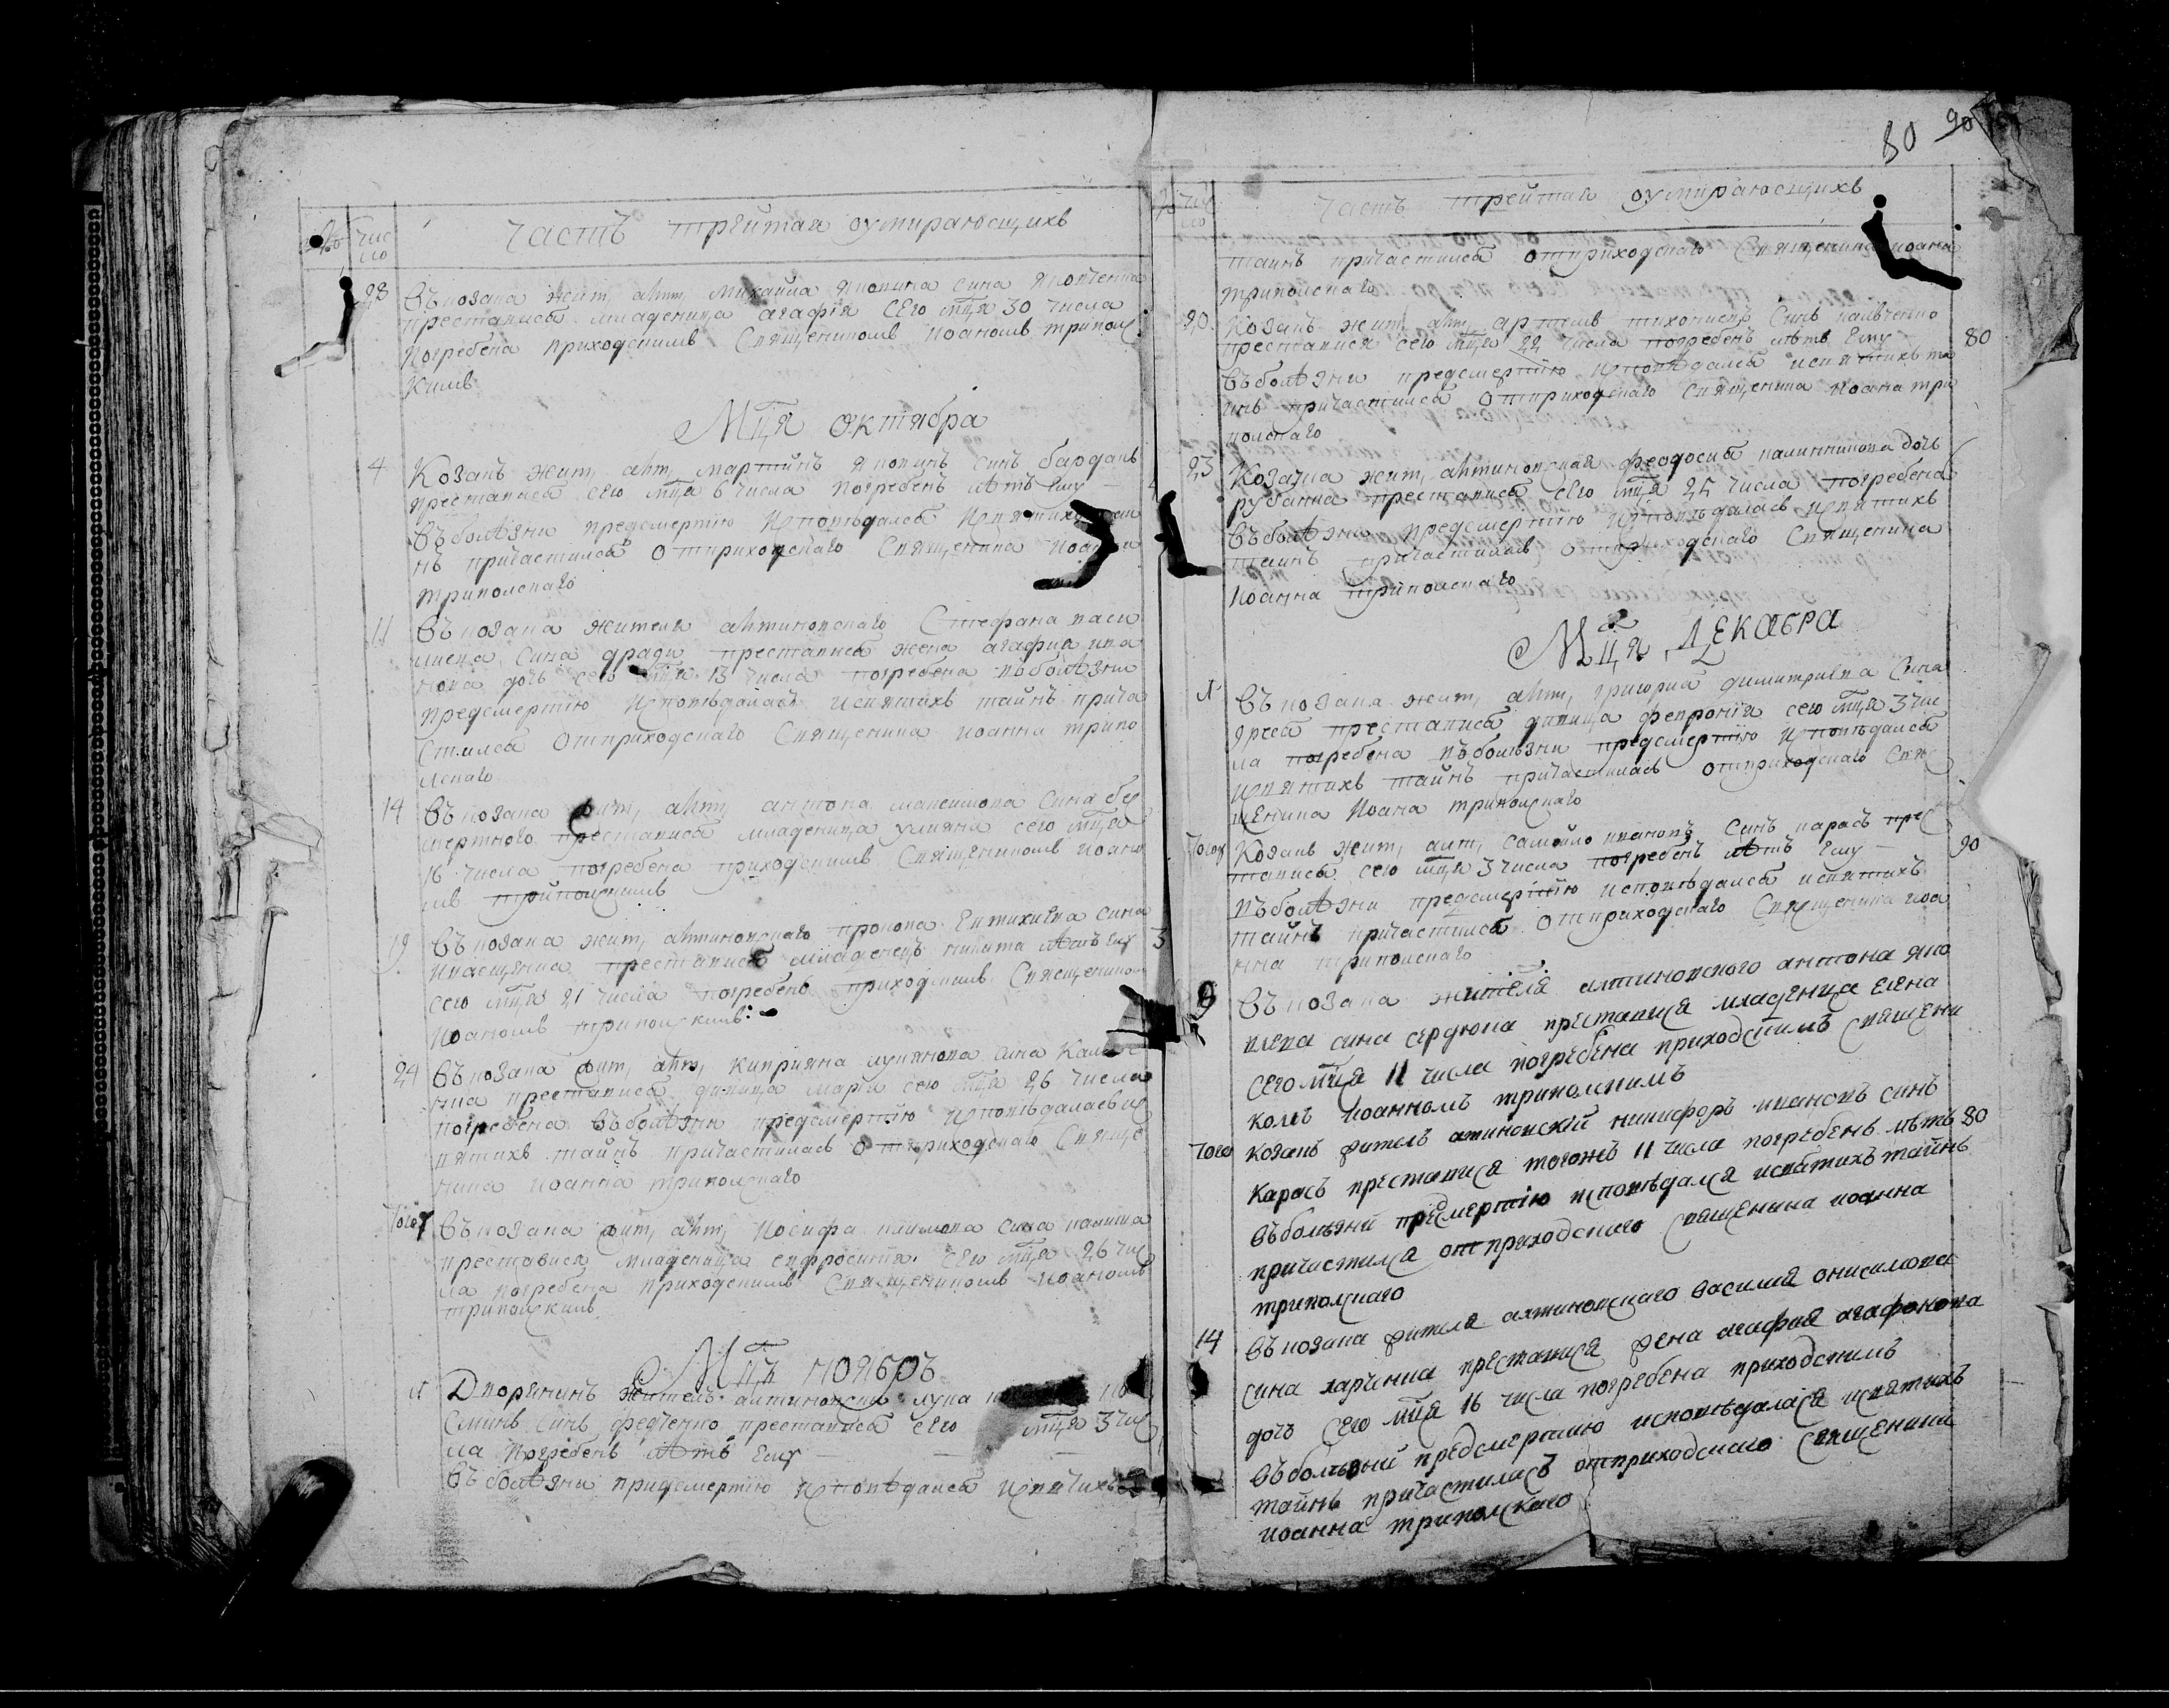 число
Частъ третая оумирающихъ
28 въ козака жит, алт, михаила яковлева сина
преставися младеница агафія сего мця 30 числа
погребена приходскимъ священикомъ иоаномъ трипол
скимъ
Мця октября
4 Козакъ жит, алт, мартинъ яковлевъ синъ бардакъ
преставися сего мця 6 числа погребенъ лѣтъ ему
въ болѣзни предсмертію исповѣдался исвятихъ таи
нъ причастился отприходскаго священика иоанна
триполскаго
11 въ козака жителя алтиновскаго Стефана васи
лиева сина преставися жена агафия ива
нова дочь сего мця 13 числа погребена въ болѣзни
предсмертію исповѣдалась исвятихъ таинъ прича
стилася отприходскаго священика иоанна трипо
лскаго
14 въ козака жит, алт, антона максимова сина без
смертного преставися младеница улияна сего мця
16 числа погребена приходскимъ священикомъ иоано
мъ триполскимъ
19 въ козака жит, алтиновскаго прокопа Евтихиева сина
ивасченка преставися младенецъ никита лѣтъ ему 3
сего мця 21 числа погребенъ приходскимъ священикомъ
иоаномъ триполскимъ:
24 въ козака жит, алт, киприяна лукянова сина
преставися дивица марія сего мця 26 числа
погребена въ болѣзни предсмертію исповѣдалась ис
вятихъ таинъ причастилась отприходскаго священ
ника иоанна триполскаго
Тогож въ козака жит, алт, иосифа климова сина
преставися младеница ефросиния сего мця 26 чис
ла погребена приходскимъ священикомъ иоаномъ
триполскимъ
Мць ноябръ
Дворянинъ житель алтиновский лука
синъ федченко преставися сего мця 3 чис
ла погребенъ лѣтъ ему
въ болѣзни предсмертію исповѣдался исвятихъ
80 90
число
Частъ третая оумирающихъ
таинъ причастился отприходскаго священика иоана
триполскаго
20 Козакъ жит, алт, артемъ тихониевъ синъ
преставися сего мця 22 числа погребенъ лѣтъ ему 80
въ болѣзни предсмертію исповѣдался исвятихъ та
инъ причастился отприходскаго священика иоана три
полскаго
23 Козачка жит, алтиновская феодосия калинникова дочь
рубанка преставися сего мця 25 числа погребена
въ болѣзни предсмертію исповѣдалась исвятихъ
таинъ причастилась отприходскаго священика
иоанна триполскаго
Мця декабра
въ козака жит, алт, григория димитриева сина
преставися дивица феврония сего мця 3 чис
ла погребена въ болѣзни предсмертію исповѣдалася
исвятихъ таинъ причастилась отприходскаго свя
щеника иоана триполскаго
Тогож Козакъ жит, алт, самойло ивановъ синъ карасъ прес
тавися сего мця 3 числа погребенъ лѣтъ ему 90
въ болѣзни предсмертію исповѣдался исвятихъ
таинъ причастился отприходскаго священика иоа
нна триполскаго
9 въ козака жителя алтиновского антона яко
влева сина сердюка преставися младеница елена
сего мця 11 числа погребена приходскимъ священи
комъ иоанномъ триполскимъ
Тогож козакъ житель алтиновский никифоръ ивановъ синъ
карасъ преставися тогожъ 11 числа погребенъ лѣтъ 80
въ болѣзни предсмертію исповѣдался исвятихъ таинъ
причастился отприходскаго священика иоанна
триполскаго
14 въ козака жителя алтиновскаго василия онисимова
сина преставися жена агафия агафонова
дочь сего мця 16 числа погребена приходскимъ
въ болѣзни предсмертию исповѣдалася исвятихъ
таинъ причастилась отприходскаго священика
иоанна триполскаго